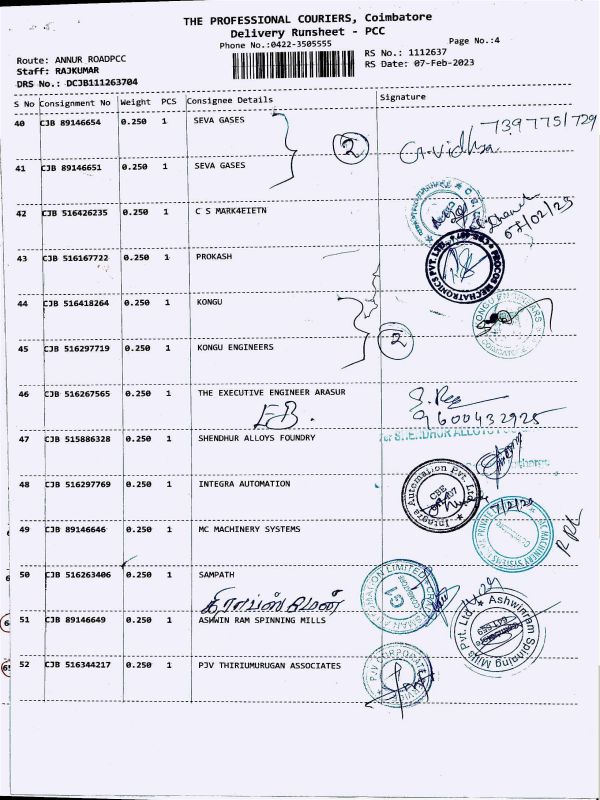 THE PROFESSIONAL COURIERS, Coimbatore
Delivery Runsheet - PCC
Phone No.:0422-3505555
Page No.:4
Route: ANNUR ROADPCC
RS No.: 1112637
Staff: RAJKUMAR
RS Date: 07-Feb-2023
DRS No.: DCJB111263704
S No Consignment No Weight PCS Consignee Details Signature
40 CJB 89146654 0.250 1 SEVA GASES
7397751729
2 G.vidhya
41 CJB 89146651 0.250 1 SEVA GASES
42 CJB 516426235 0.250 1 C S MARK4EIETN
07/02/23
43 CJB 516167722 0.250 1 PROKASH
PROCOS MECHATRONICS PVT. LTD.
44 CJB 516418264 0.250 1 KONGU
KONGU ENGINEERS
2
45 CJB 516297719 0.250 1 KONGU ENGINEERS
46 CJB 516267565 0.250 1 THE EXECUTIVE ENGINEER ARASUR
EB.
9600432925
47 CJB 515886328 0.250 1 SHENDHUR ALLOYS FOUNDRY
48 CJB 516297769 0.250 1 INTEGRA AUTOMATION
Integra Automation Pvt. Ltd.
CBE
7/2/23
49 CJB 89146646 0.250 1 MC MACHINERY SYSTEMS
MC MACHINERY SYSTEMS
50 CJB 516263406 0.250 1 SAMPATH
CRAFTSMAN AUTOMATION LIMITED
51 CJB 89146649 0.250 1 ASHWIN RAM SPINNING MILLS
Ashwinram Spinning Mills Pvt. Ltd.
52 CJB 516344217 0.250 1 PJV THIRIUMURUGAN ASSOCIATES
PJV CORPORATE